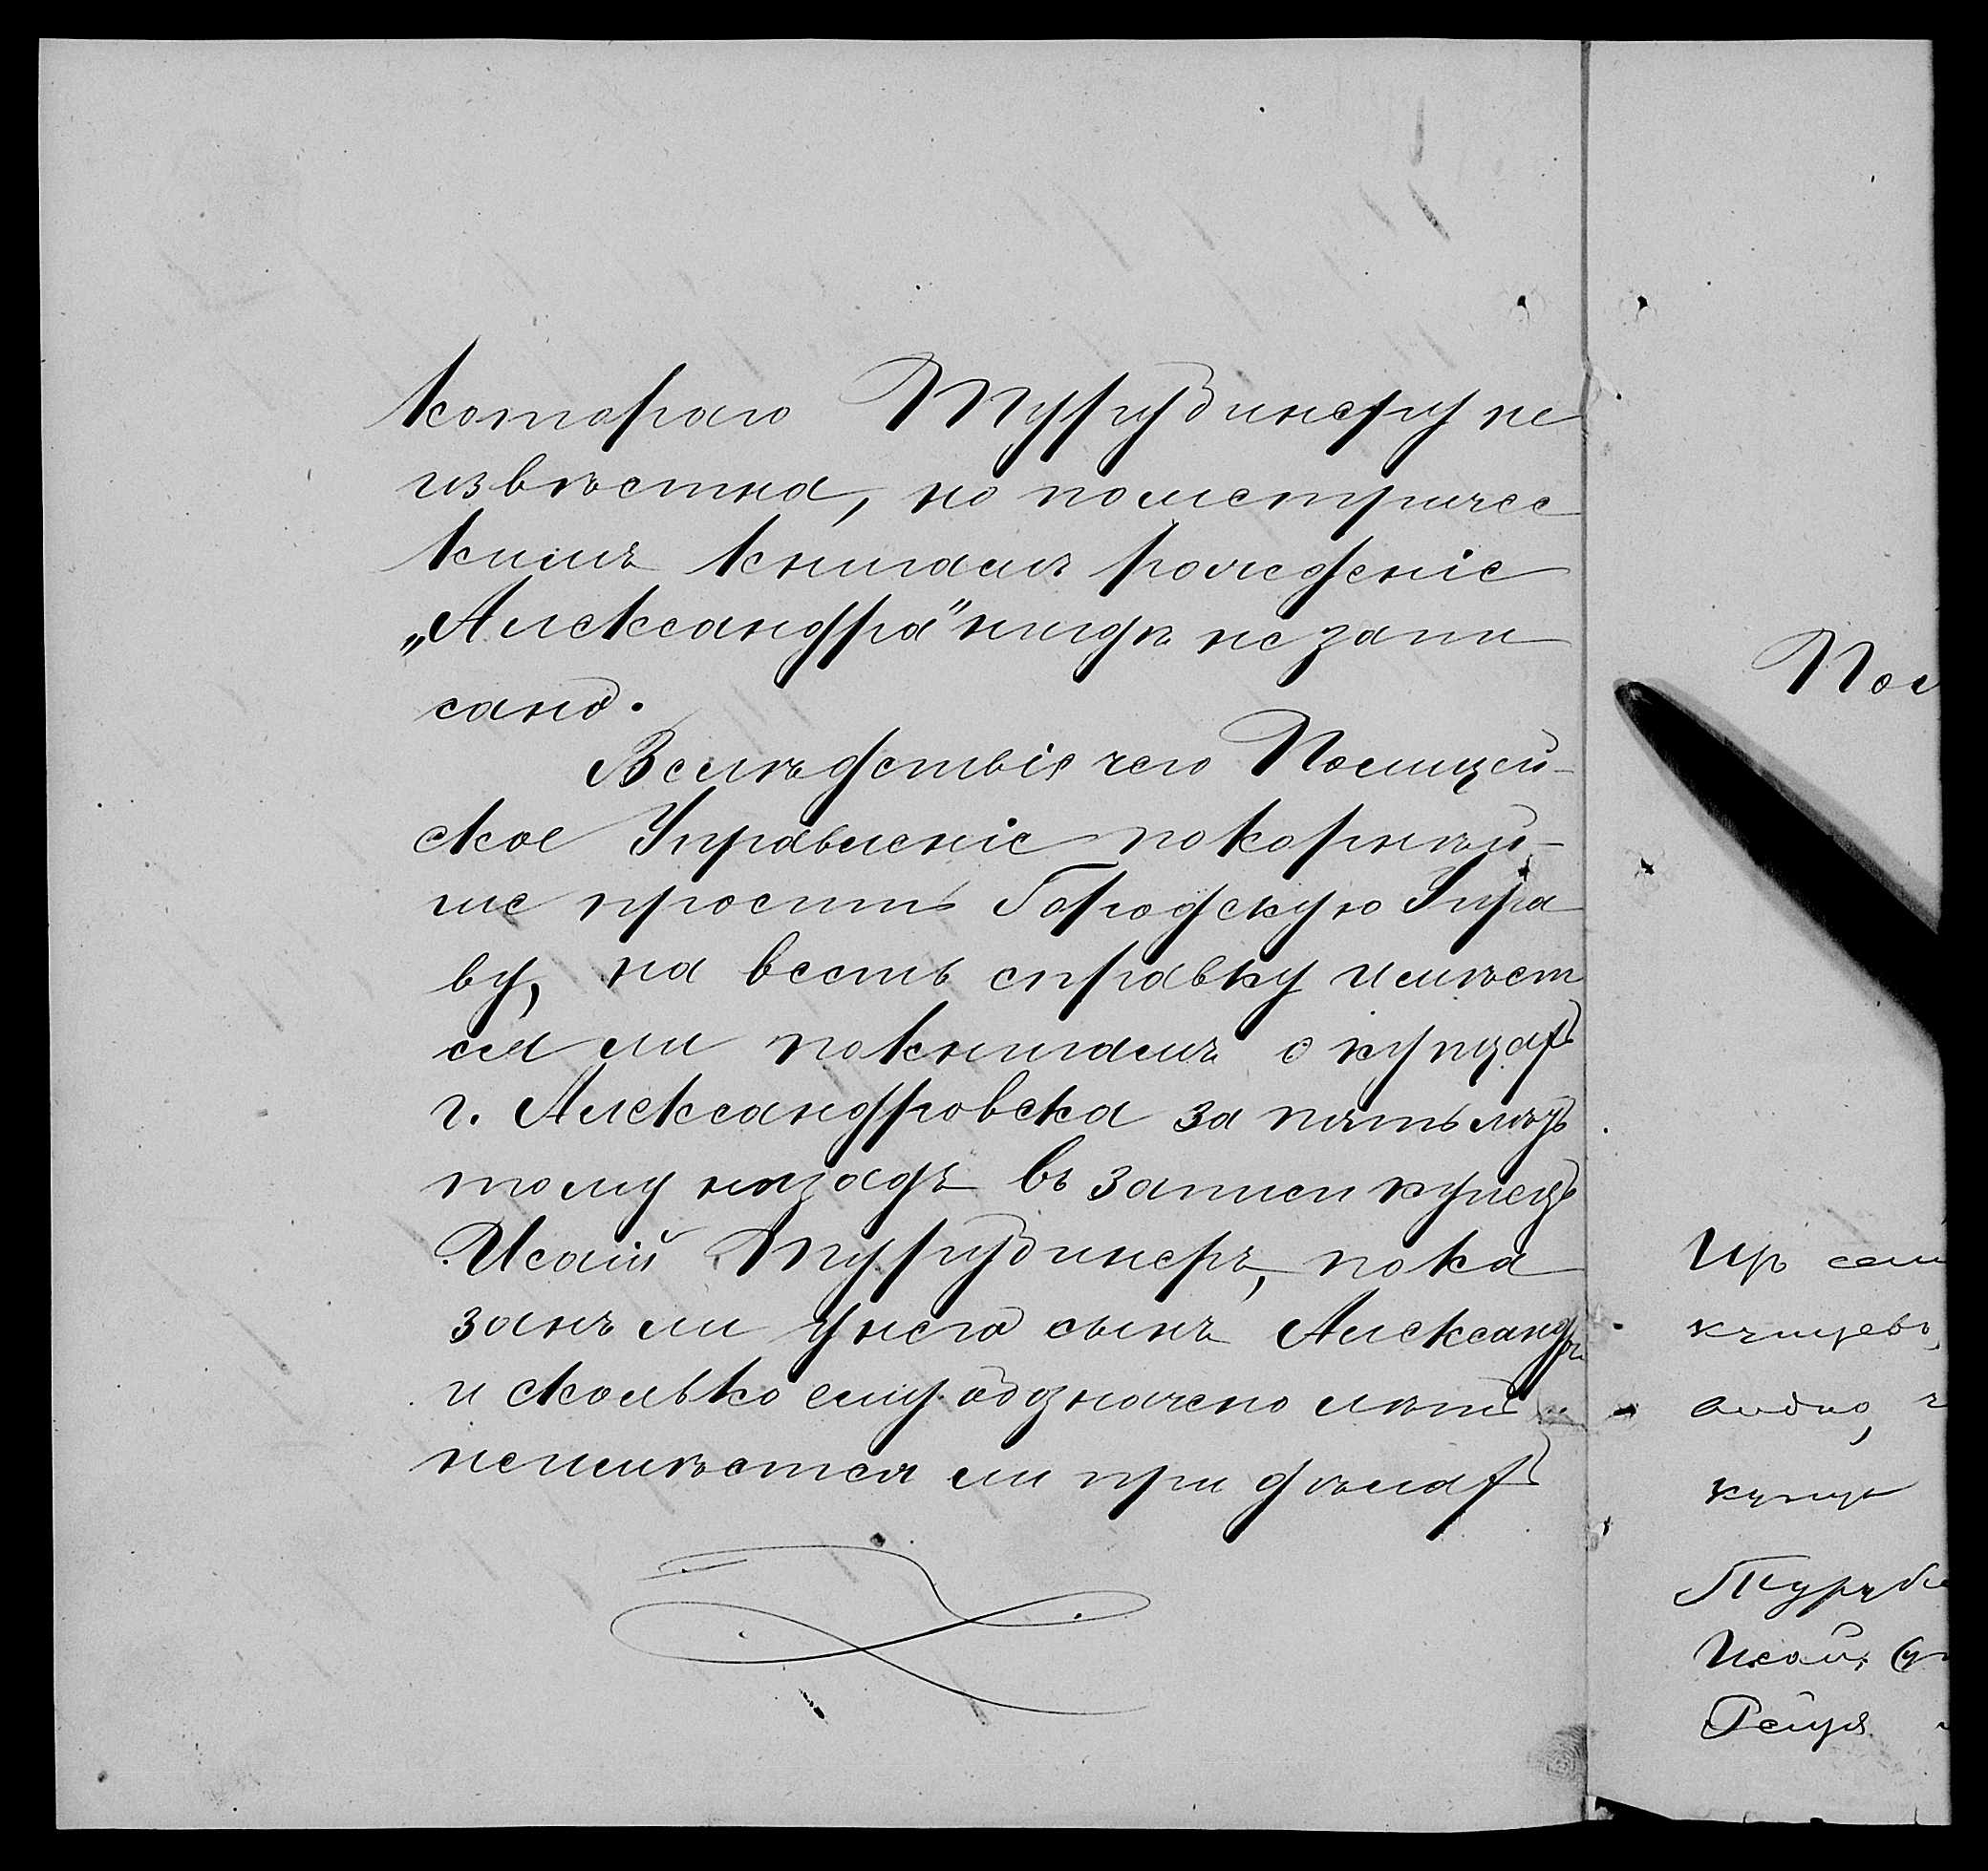 котораго Турубинеру не
извѣстна, но пометричес
кимъ книгамъ рожденіе
„Александра" нигдѣ не запи
сано.
Вслѣдствіе чего Полицей-
ское Управленіе покорнѣй-
ше проситъ Городскую Упра
ву, на весть справку имѣет
ся ли покнигамъ о купцахъ
г. Александровска за пять лѣтъ
тому назадъ въ записи купецъ
Исай Турубинеръ, пока
занъ ли у него сынъ Александръ
и сколько ему обозначено лѣтъ
неимѣется ли при дѣлахъ
Пол
купцевъ,
Исай